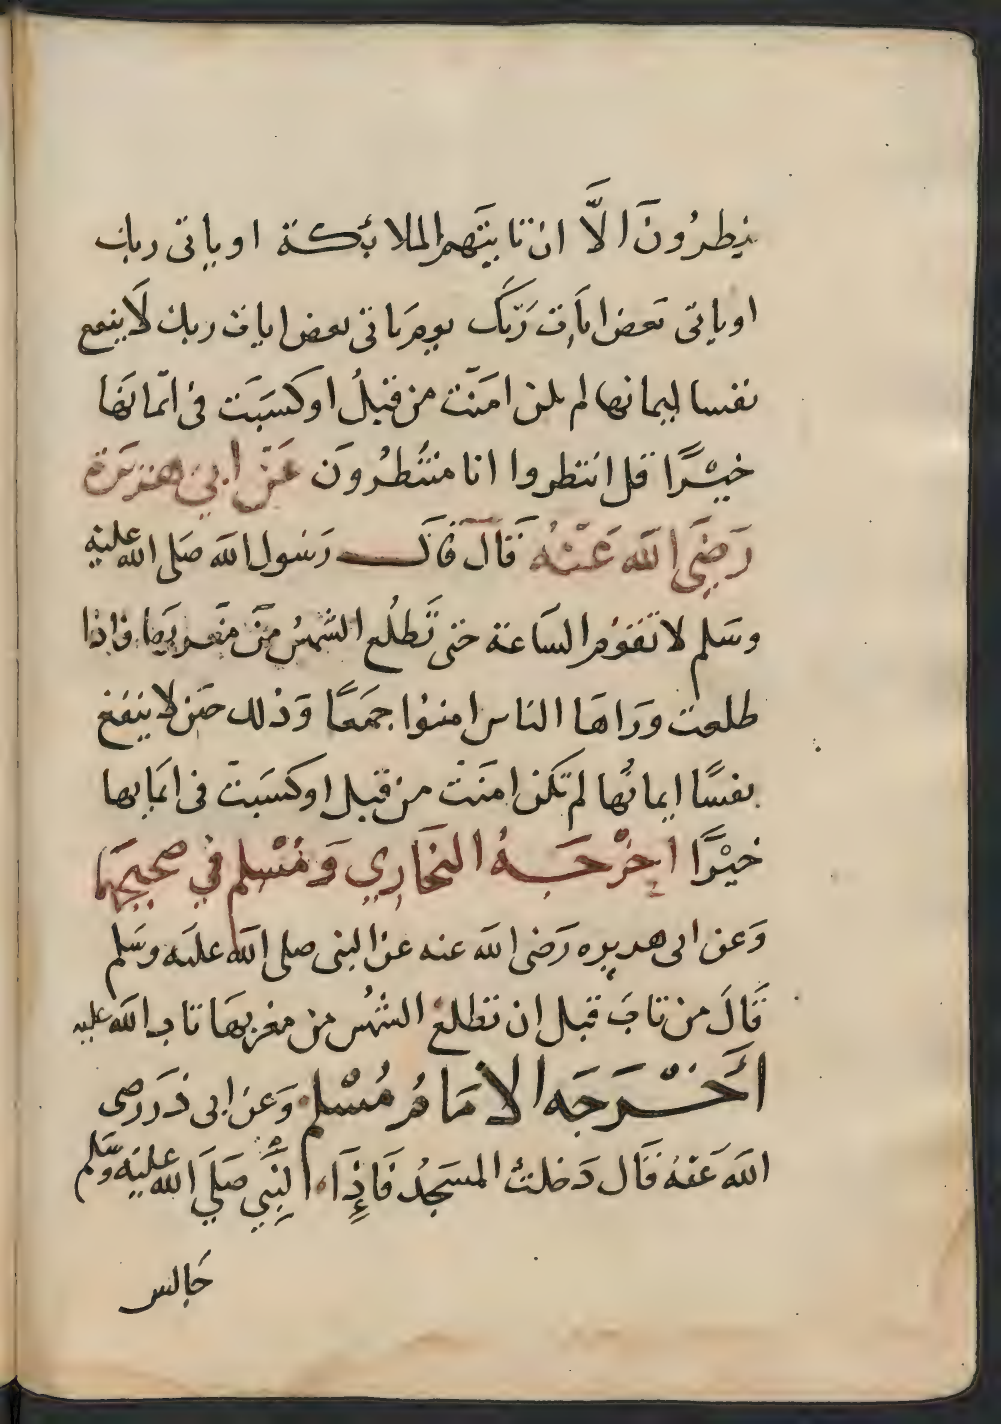 ينطرُونَ الَّا ان تاتيَهم الملائكة او ياتى ربك
او ياتى بَعض ايَات رَبّكَ يومَ ياتى بعض ايات ربك لَا ينفع
نفسا ايمانها لم تكن امَنَت من قبلُ او كسَبَت فى ايمانهَا
خيْرًا قل انتظروا انا منتَطرُونَ عَنْ ابي هريرَة
رَضِيَ الله عَنْهُ قَالَ قَالَ رَسُول الله صَلى الله عليْه
وسَلم لا تقومُ السَاعة حتى تَطلُع الشمسُ منْ مَغربهَا فاذا
طلعت وَرَاهَا الناس امنوُا جمَعًا وَذلك حيَن لا ينفعُ
نفسًا ايمانُها لم تكن امَنَت من قبل او كسَبَت فى ايمَانها
خيْرًا اخرْجَـــهُ البُخَارِي وَمُسْلم فِي صحيحَيهمَا
وَعن ابى هريره رَضى الله عنه عن النبى صلى الله عليَه وسَلم
قَالَ من تابَ قبل ان تطلع الشمُس من مغربهَا تاب الله عليه
اخْــرَجَه الامَامُ مُسْلم وَعن ابى ذَر رَضى
الله عَنهُ قَال دَخلتُ المسَجدُ فَاذَا النَّبِي صَلَي الله عليْه وسَّلم
جَالس